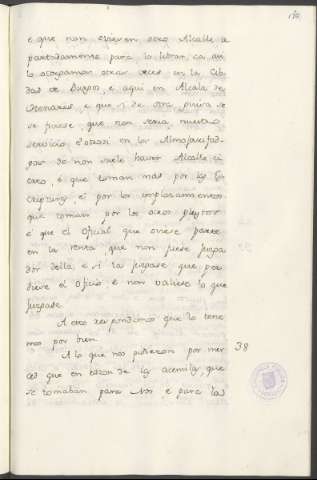 e que non oviesen otro Alcalle a
partadamente para lo librar, ca an
lo otorgamos otras veces en la Cib
dad de Burgos e aqui en Alcalá de
Henares, e que si de otra guisa se
se ficiese, que non seria nuestro
servicio, e otrosi en los Almojarifad
gos do non suele haver Alcalle ci
erto, é que toman mas por las Es
cripturas, é por los emplasamientos
que toman por los otros pleytos
é que el oficial que oviese parte
en la renta que non fuese jusga
dor della, e si la jusgase que per
diese el oficio, e non valiese lo que
jusgase.
A esto respondemos que lo tene
mos por bien.
A lo que nos pidieron por mer 38
ced que en razon de las acemilas, que
se tomaban para Nos e para las